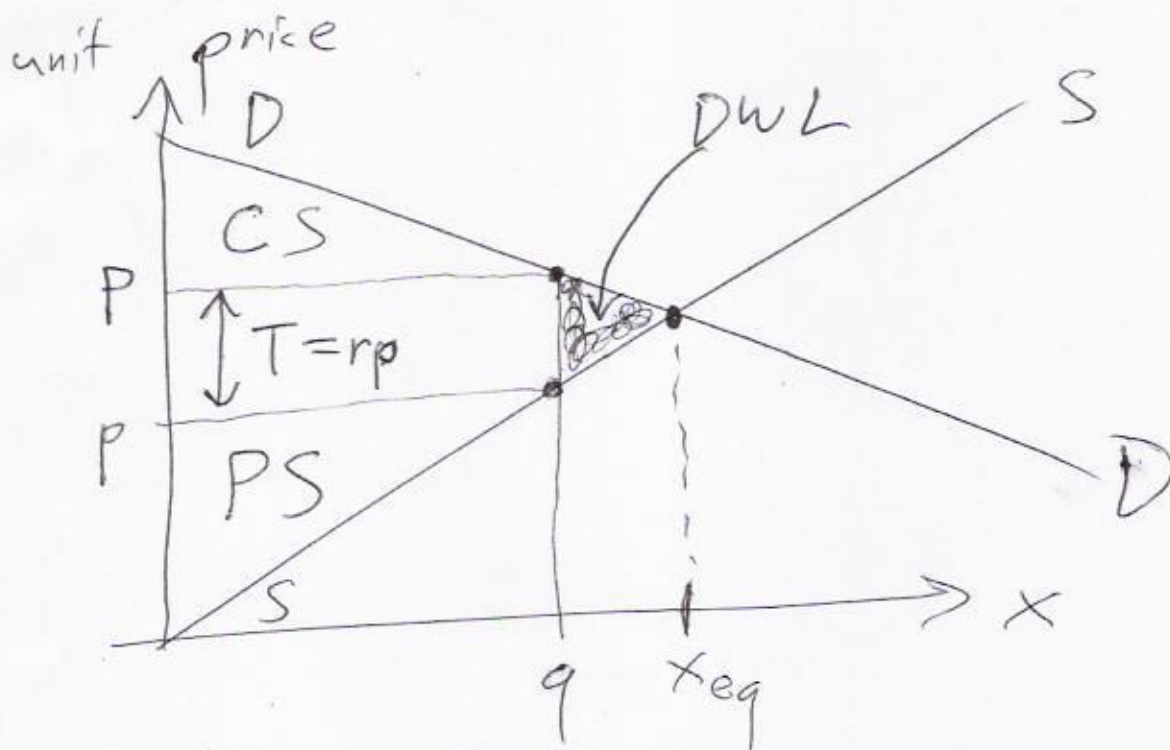 unit price
D
DWL
S
CS
P
T=rp
p
PS
S
D
X
q
xeq